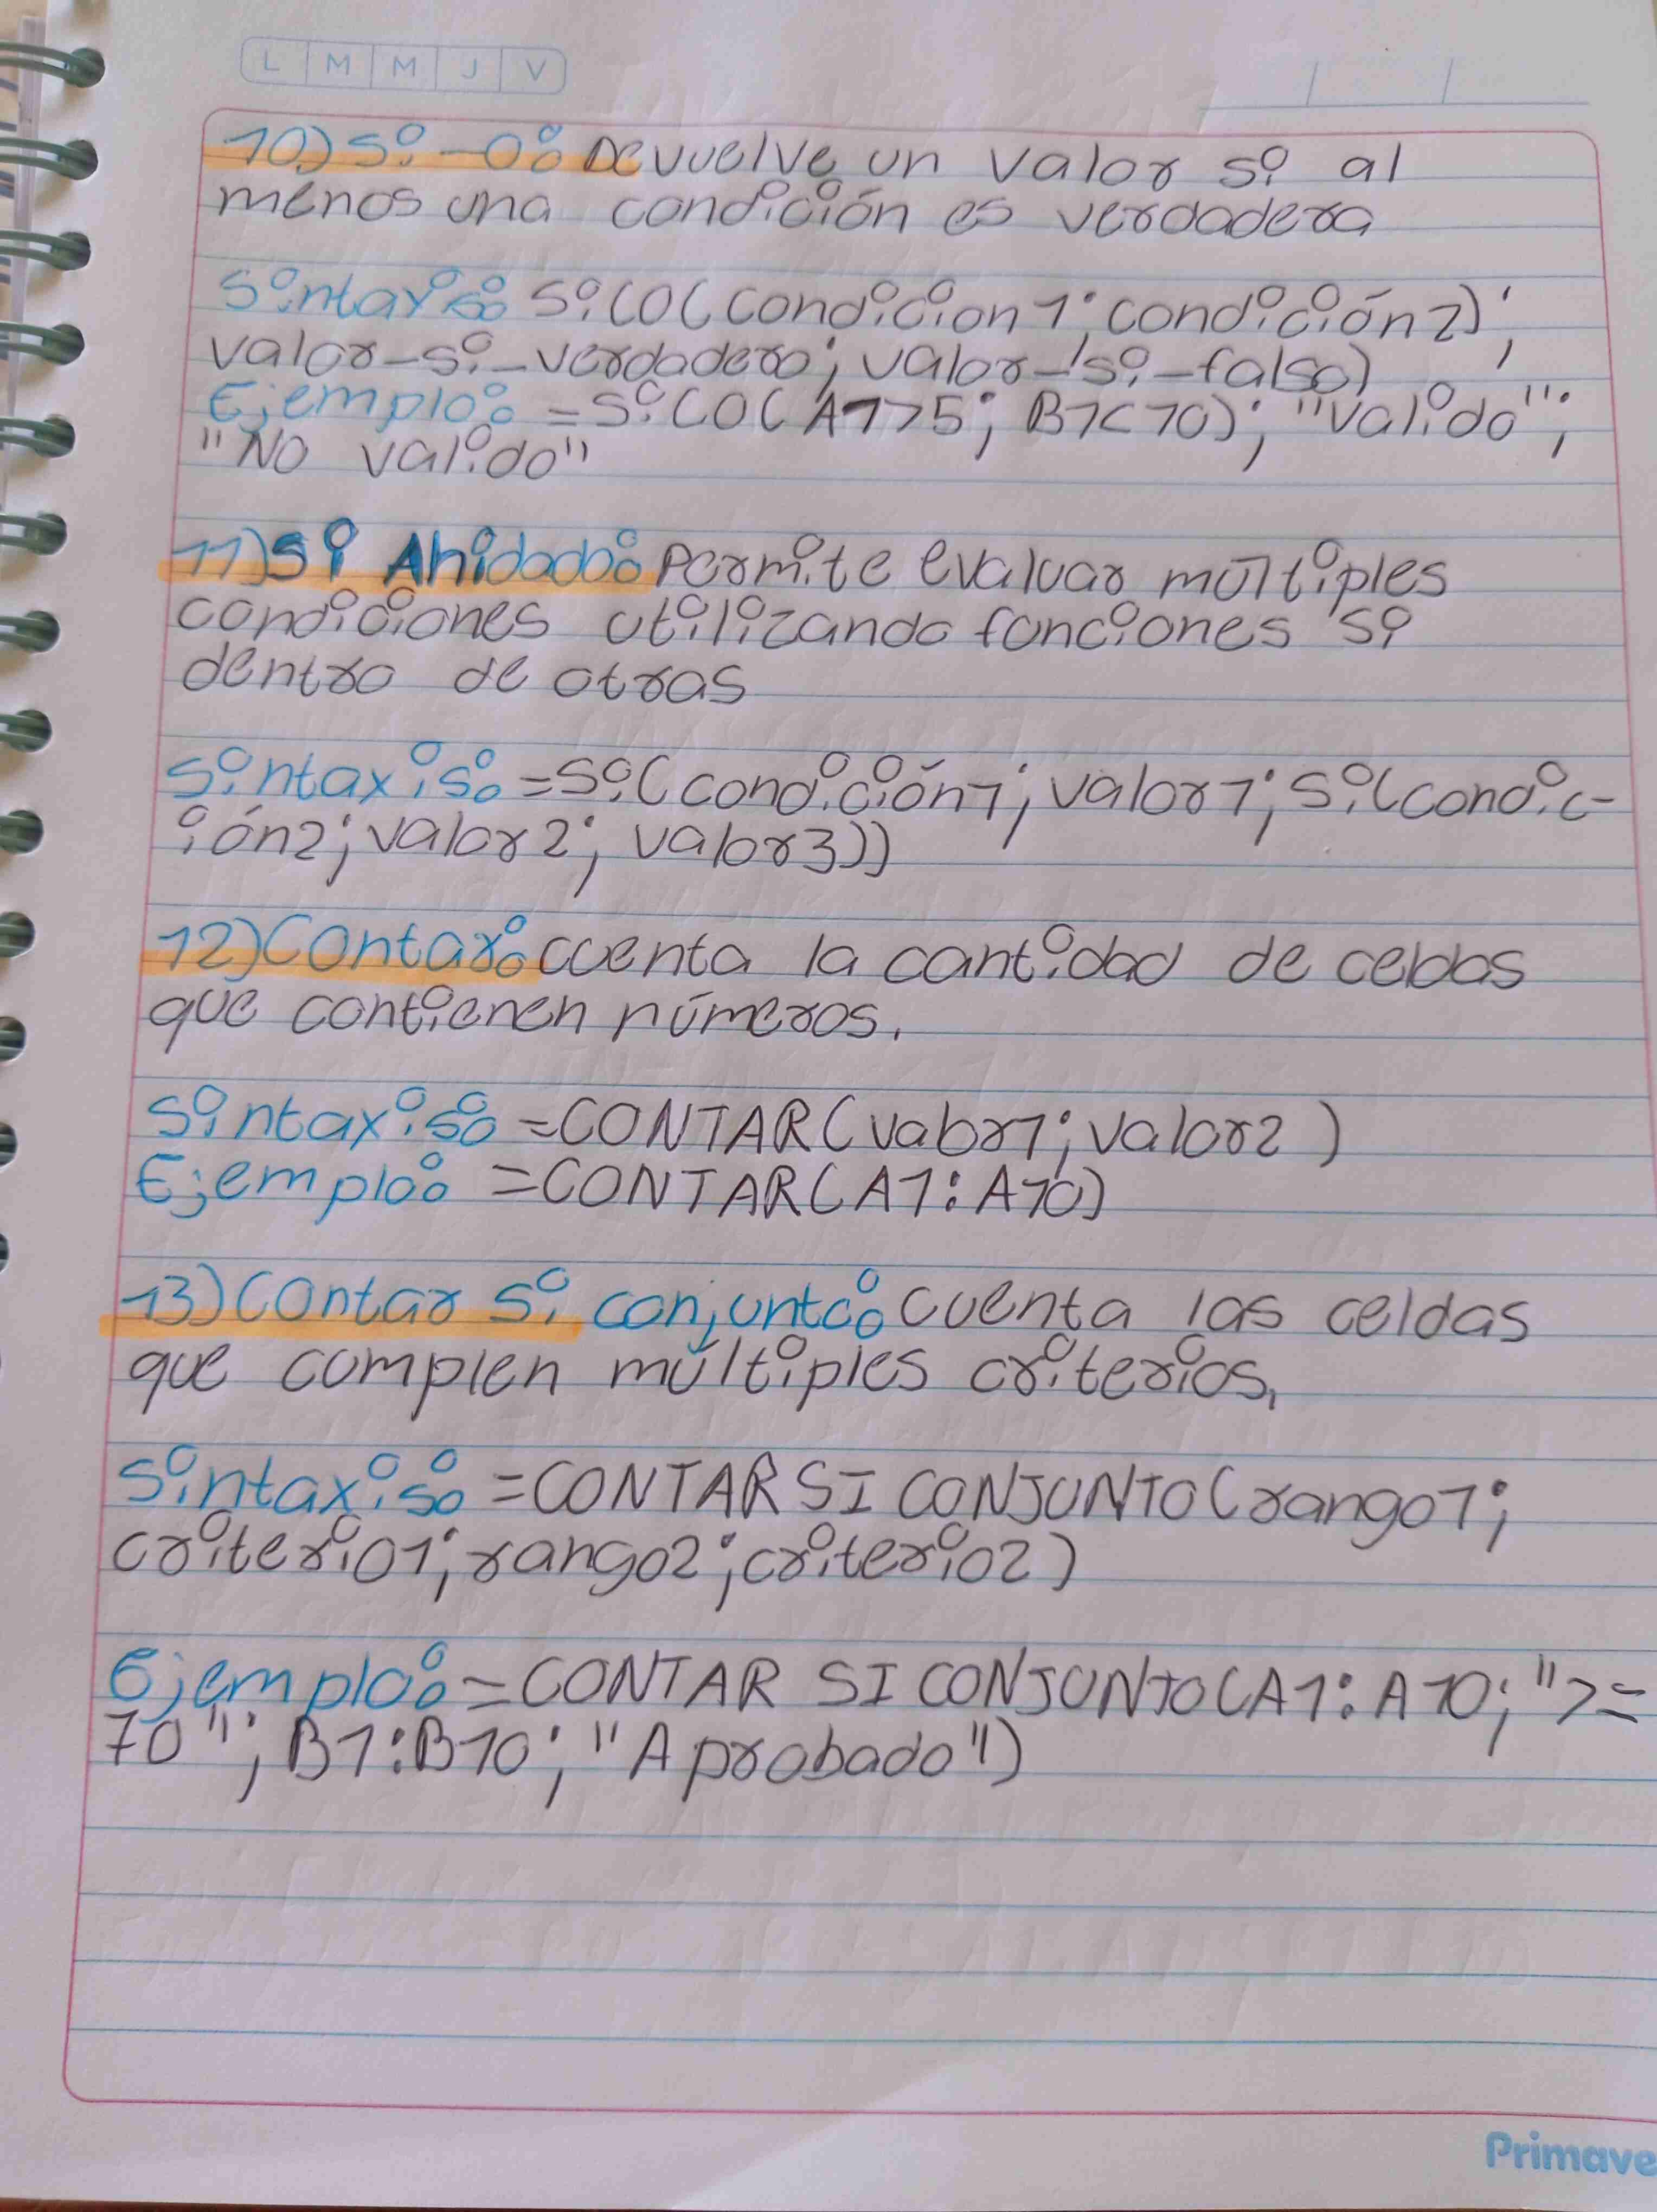 L M M J V
10) Si-O: Devuelve un valor si al
menos una condición es verdadera
Sintaxis: Si(O(condicion1;condición2);
valor-si-verdadero; valor-si-falso)
Ejemplo: =Si(O(A1>5; B1<10); "valido";
"No valido"
11) Si Ahidado: Permite evaluar múltiples
condiciones utilizando funciones si
dentro de otras
Sintaxis: =Si(condición1; valor1; Si(condic-
ión2; valor2; valor3))
12) Contar: cuenta la cantidad de celdas
que contienen números.
Sintaxis: =CONTAR(valor1; valor2 )
Ejemplo: =CONTAR(A1:A10)
13) Contar si conjunto: cuenta las celdas
que complen múltiples criterios,
Sintaxis: =CONTAR SI CONJUNTO(rango1;
criterio1; rango2; criterio2)
Ejemplo: =CONTAR SI CONJUNTO(A1:A10; ">=
70"; B1:B10; "Aprobado")
Primave